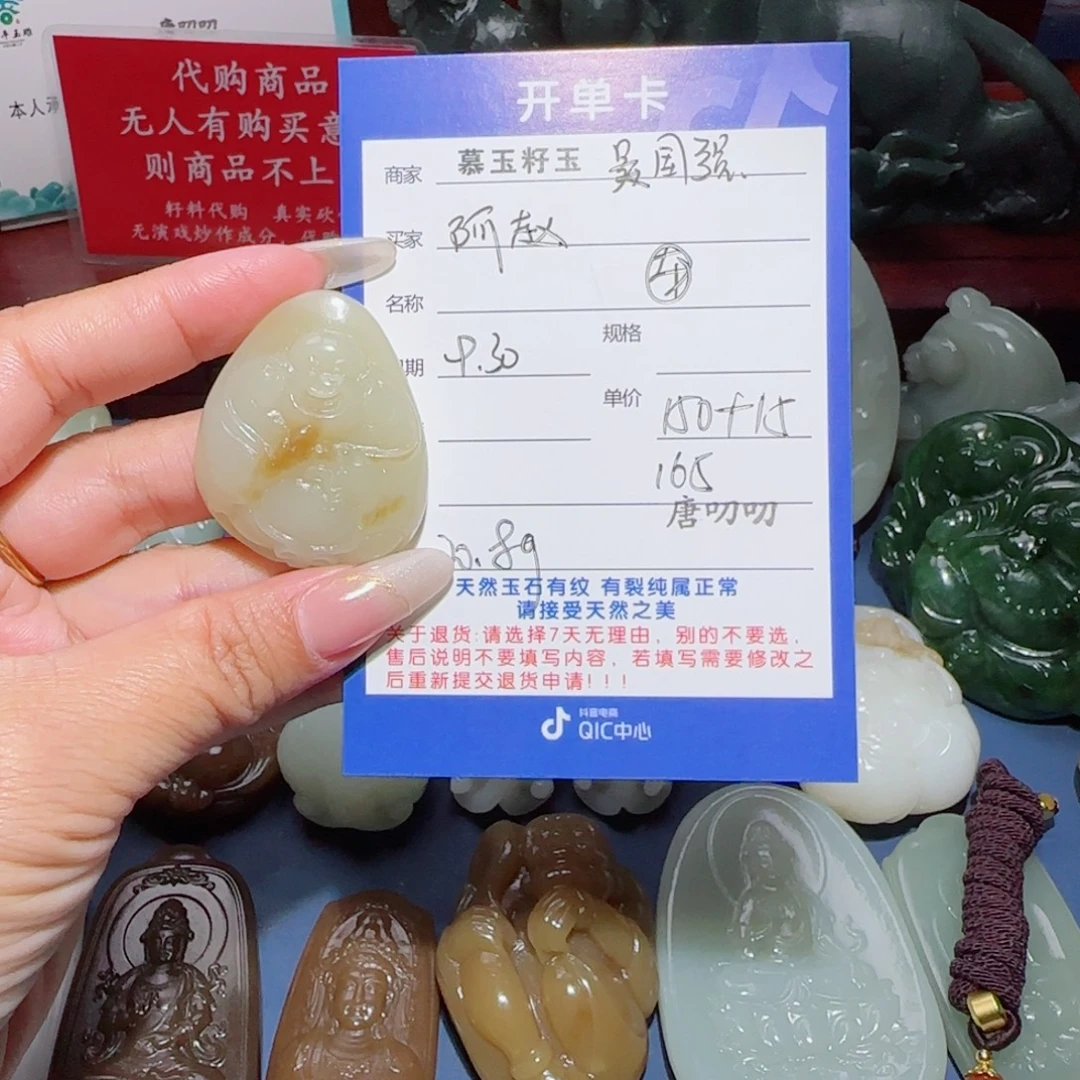 唐叨叨
本人承
代购商品
无人有购买意
则商品不上
籽料代购 真实砍
无演戏炒作成分,
开单卡
商家 慕玉籽玉
买家 阿赵
名称
规格
期 9.30
单价 150+15
165
唐叨叨
20.8g
天然玉石有纹 有裂纯属正常
请接受天然之美
关于退货:请选择7天无理由,别的不要选,
售后说明不要填写内容,若填写需要修改之
后重新提交退货申请!!!
抖音电商
QIC中心